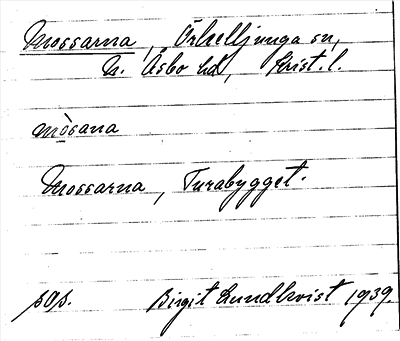 Mossarna, Örkelljunga sn,
N. Åsbo hd, Krist. l.
mòsana
Mossarna, Turabygget.
sOs.
Birgit Lundkvist 1939.